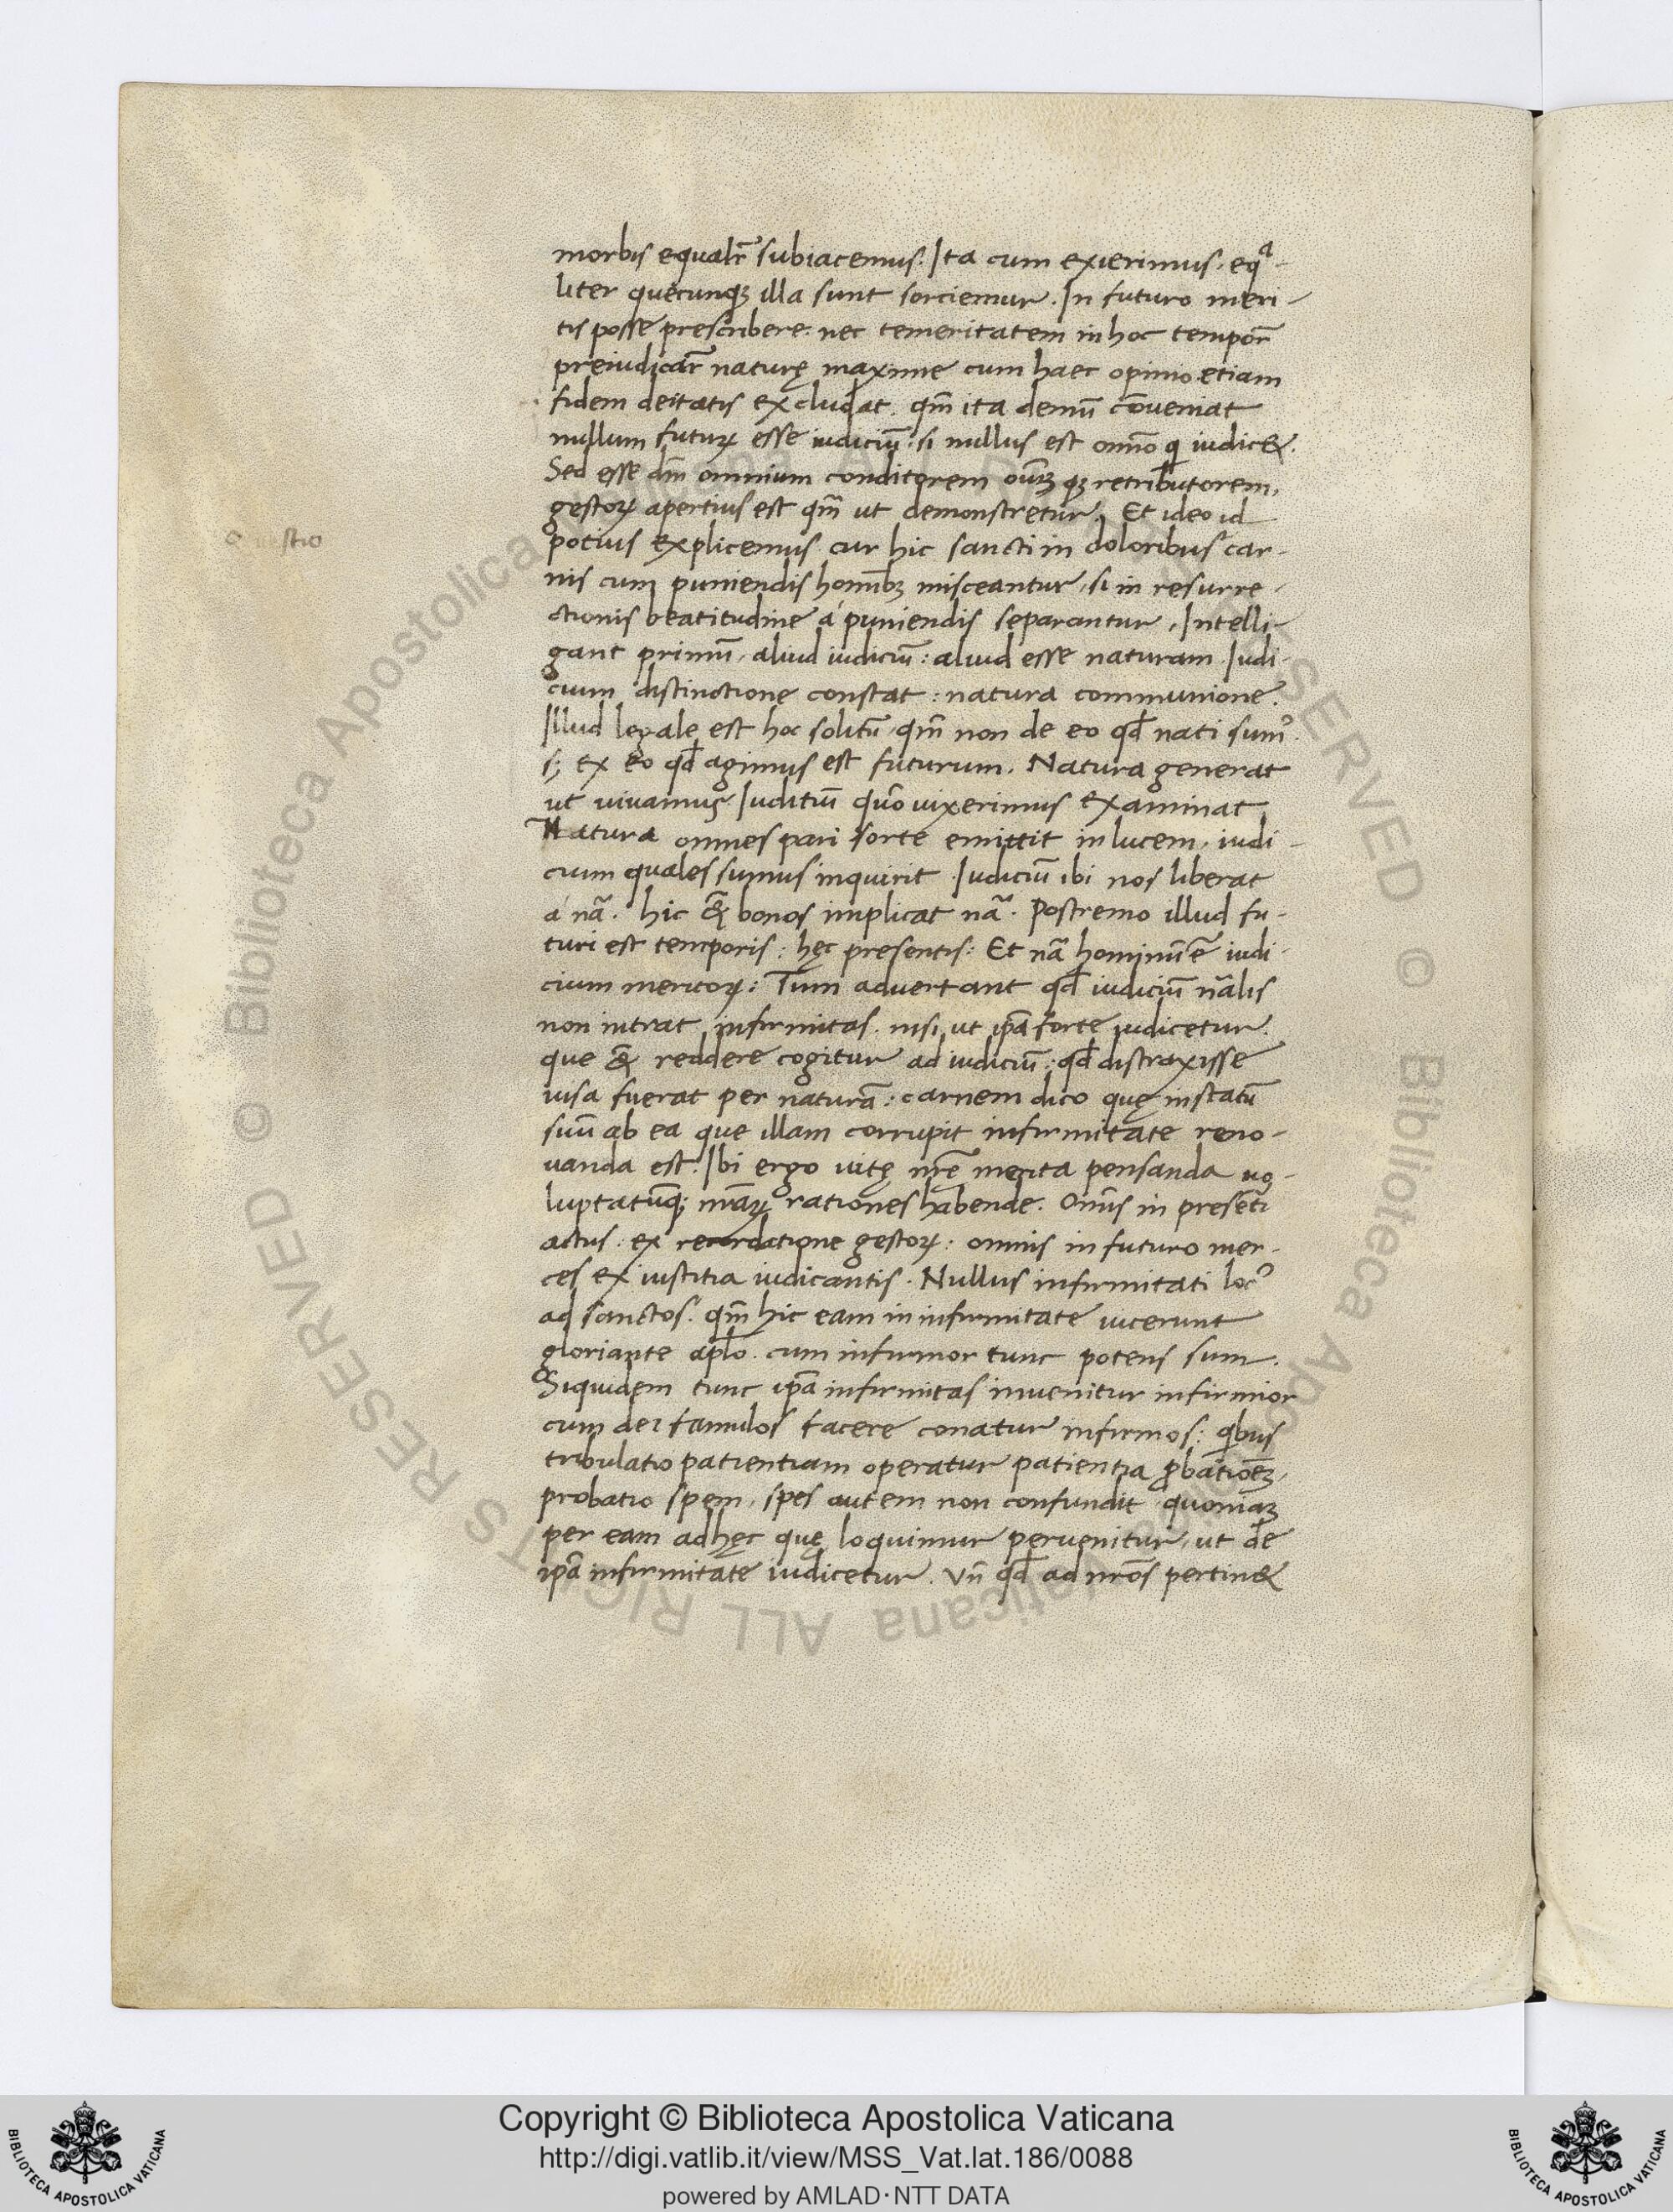 morbis equalr̄ subiacemus. Ita cum exierimus, eqᵃ-
liter quecunqꝫ illa sunt sorciemur. In futuro meri-
tis posse prescribere: nec temeritatem in hoc tempor̄
preiudicar̄ naturę maxime cum haec opinio etiam
fidem deitatis excludat. qm̄ ita demū cōveniat
nullum futuꝝ esse iudiciū: si nullus est omīo qi iudic&.
Sed esse dm̄ omnium conditorem oūmqꝫ retributorem,
gestoꝝ apertius est qm̄ ut demonstretur. Et ideo id
Questio
potius explicemus cur hic sancti in doloribus car-
nis cum puniendis homībꝫ misceantur, si in resurre-
ctionis beatitudine á puniendis separantur. Intelli-
gant primū, aliud iudiciū: aliud esse naturam. Iudi-
cium distinctione constat: natura communione.
Illud legale est hoc solitū, qm̄ non de eo qd̄ nati sumꝰ
sꝫ ex eo qd̄ agimus est futurum. Natura generat
ut vivamus. Iuditiū quō vixerimus examinat
Natura omnes pari sorte emittit in lucem, iudi-
cium quales sumus inquirit. Iudiciū ibi nos liberat
á nā. hic &̄ bonos implicat nā. Postremo illud fu-
turi est temporis: hęc presentis: Et nā hominū ē iudi-
cium meritoꝝ: Tum advertant qd̄ iudiciū nālis
non intrat infirmitas. nisi ut ip̄a forte iudicetur.
que &̄ reddere cogitur ad iudiciū: qd̄ distraxisse
visa fuerat per naturā: carnem dico quę in statū
suū ab ea que illam corrupit infirmitate reno-
vanda est. Ibi ergo vitę nr̄ę merita pensanda vo-
luptatūqꝫ nr̄aꝝ rationes habende. Om̄is in presēti
actus: ex recordatione gestoꝝ: omnis in futuro mer-
ces ex iustitia iudicantis. Nullus infirmitati locꝰ
ad sanctos. qm̄ hic eam in infirmitate vicerunt
gloriante aplo̅. cum infirmor tunc potens sum.
Siquidem tunc ip̄a infirmitas invenitur infirmior
cum dei famulos facere conatur infirmos: qibus
tribulatio patientiam operatur patientia ꝓbatioēꝫ,
probatio spem, spes autem non confundit quoniaꝫ
per eam ad hęc quę loquimur pervenitur, ut de
ip̄a infirmitate iudicetur. Vn̄ qd̄ ad nr̄os pertin&
Copyright © Biblioteca Apostolica Vaticana
http://digi.vatlib.it/view/MSS_Vat.lat.186/0088
powered by AMLAD·NTT DATA
BIBLIOTECA APOSTOLICA VATICANA
BIBLIOTECA APOSTOLICA VATICANA